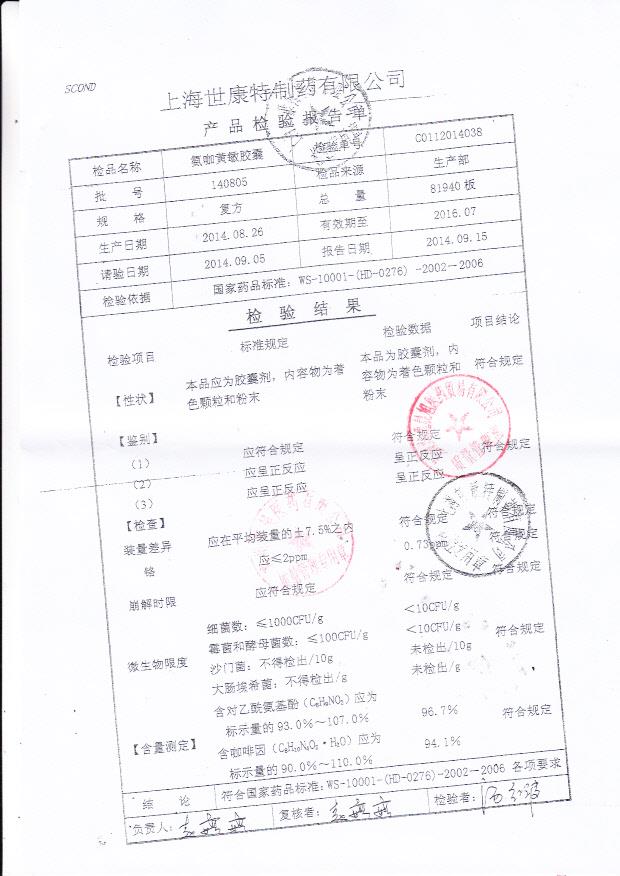 SCOND
上海世康特制药有限公司
产品检验报告单
检品名称 氨咖黄敏胶囊 检验单号 C0112014038
批 号 140805 检品来源 生产部
规 格 复方 总 量 81940 板
生产日期 2014.08.26 有效期至 2016.07
请验日期 2014.09.05 报告日期 2014.09.15
检验依据 国家药品标准：WS-10001-(HD-0276)-2002-2006
检 验 结 果
检验项目 标准规定 检验数据 项目结论
【性状】 本品应为胶囊剂，内容物为着 本品为胶囊剂，内 符合规定
色颗粒和粉末 容物为着色颗粒和
粉末
【鉴别】
(1) 应符合规定 符合规定 符合规定
(2) 应呈正反应 呈正反应
(3) 应呈正反应 呈正反应
【检查】
装量差异 应在平均装量的±7.5%之内 符合规定 符合规定
铬 应≤2ppm 0.73ppm 符合规定
崩解时限 应符合规定 符合规定 符合规定
细菌数：≤1000CFU/g <10CFU/g
霉菌和酵母菌数：≤100CFU/g <10CFU/g
微生物限度 沙门菌：不得检出/10g 未检出/10g 符合规定
大肠埃希菌：不得检出/g 未检出/g
含对乙酰氨基酚（C₈H₉NO₂）应为
标示量的 93.0%～107.0% 96.7% 符合规定
【含量测定】 含咖啡因（C₈H₁₀N₄O₂·H₂O）应为
标示量的 90.0%～110.0% 94.1%
结 论 符合国家药品标准：WS-10001-(HD-0276)-2002-2006 各项要求
负责人： 复核者： 检验者：